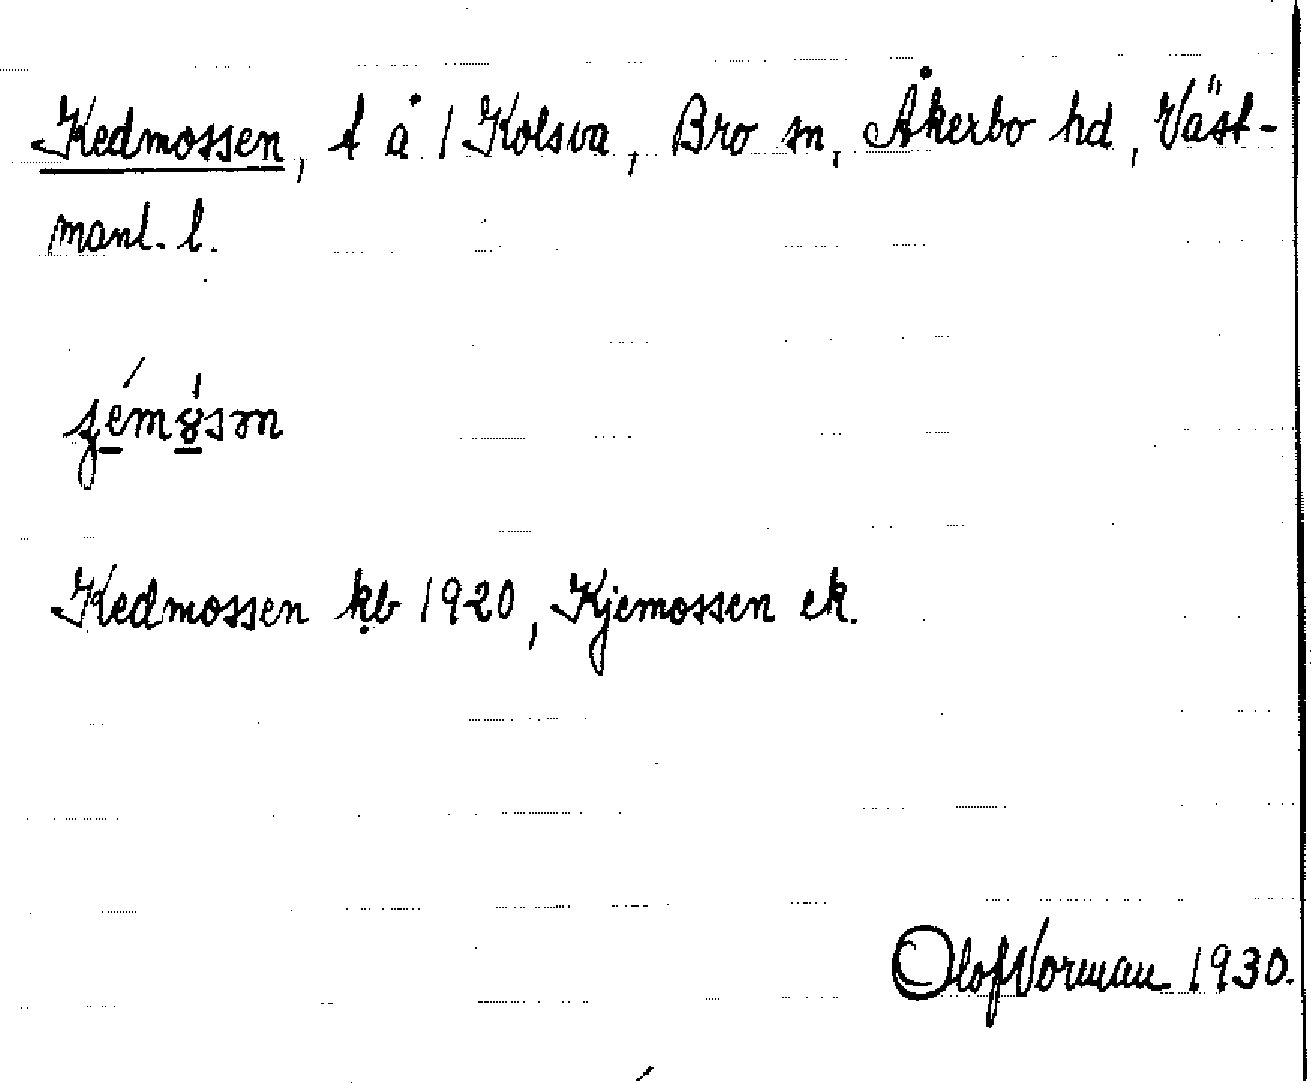 Kedmossen, t å 1 Kolsva, Bro sn, Åkerbo hd, Väst-
manl. l.
Kedmossen kb 1920, Kjemossen ek.
Olof Vorman 1930.